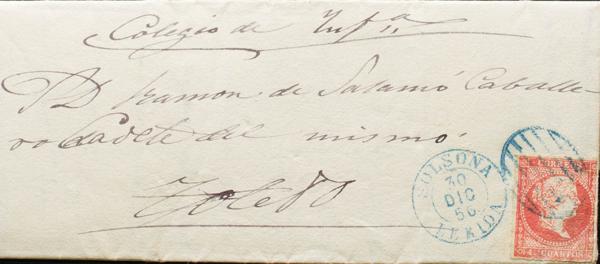 Colegio de Infª
A D. Ramon de Salamó Caballe-
ro Cadete del mismo.
Toledo
SOLSONA
30
DIC
56
LERIDA
CORREOS
4 CUARTOS